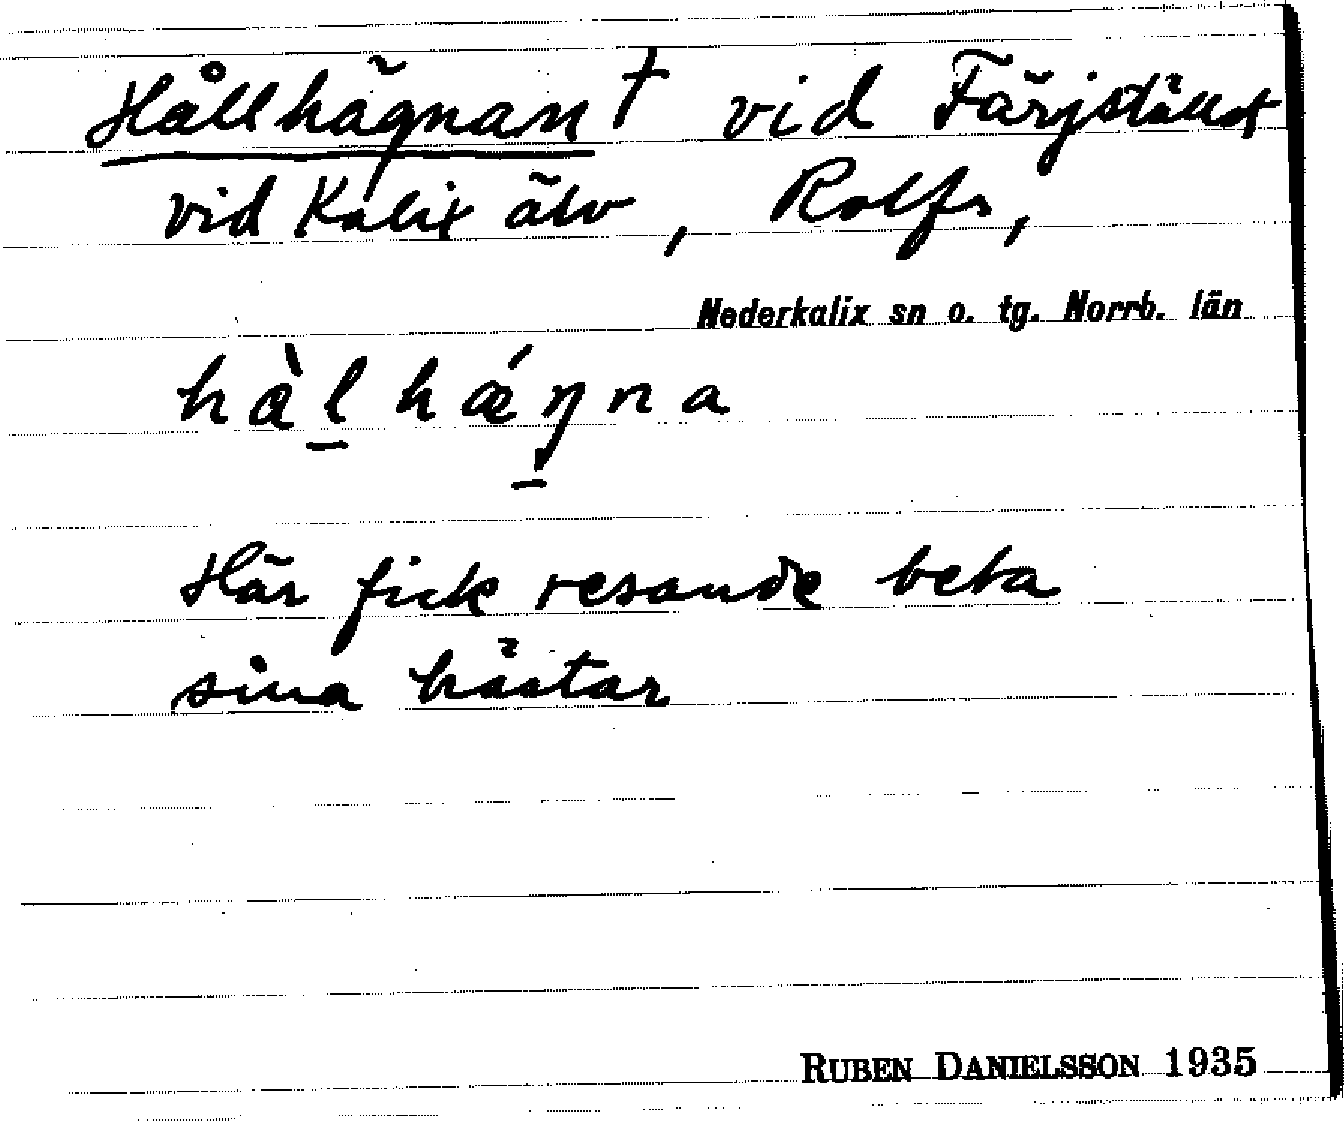 Hållhägnan † vid Färjstället
vid Kalix älv, Rolfs,
Nederkalix sn o. tg. Norrb. län
hàl̠ hǽŋ̠na
Här fick resande beta
sina hästar
RUBEN DANIELSSON 1935